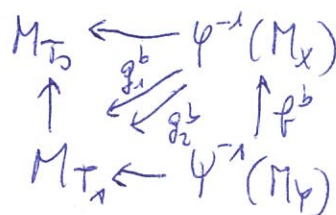 M_{T_0} ← φ^{-1}(M_X)
↑ g_1^b g_2^b ↑ f^b
M_{T_1} ← φ^{-1}(M_Y)